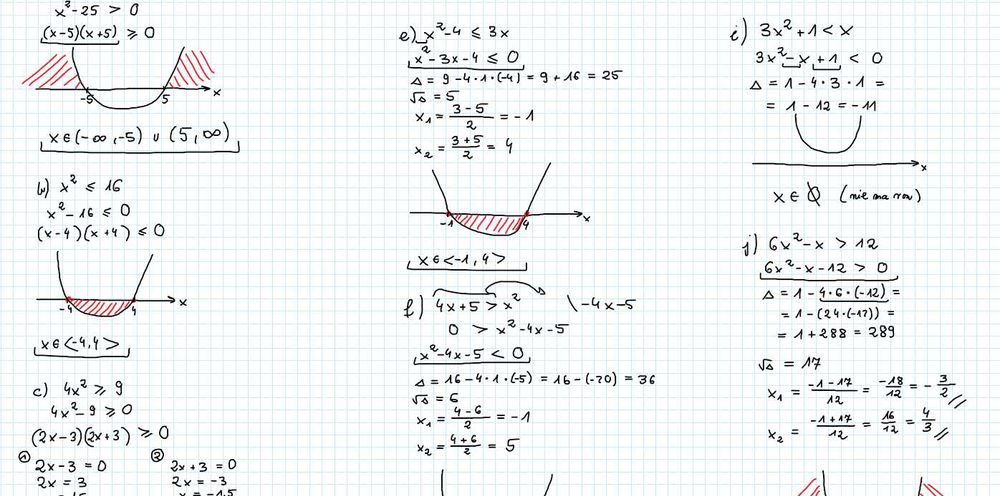 x²-25 > 0
(x-5)(x+5) ≥ 0
-5 5 x
x∈(-∞,-5) ∪ (5,∞)
b) x² ≤ 16
x²-16 ≤ 0
(x-4)(x+4) ≤ 0
-4 4 x
x∈<-4,4>
c) 4x² ≥ 9
4x²-9 ≥ 0
(2x-3)(2x+3) ≥ 0
① ②
2x-3 = 0 2x+3 = 0
2x = 3 2x = -3
x = -1,5
e) x²-4 ≤ 3x
x²-3x-4 ≤ 0
Δ = 9-4·1·(-4) = 9+16 = 25
√Δ = 5
x₁ = (3-5)/2 = -1
x₂ = (3+5)/2 = 4
-1 4 x
x∈<-1,4>
f) 4x+5 > x² \-4x-5
0 > x²-4x-5
x²-4x-5 < 0
Δ = 16-4·1·(-5) = 16-(-20) = 36
√Δ = 6
x₁ = (4-6)/2 = -1
x₂ = (4+6)/2 = 5
i) 3x²+1 < x
3x²-x+1 < 0
Δ = 1-4·3·1 =
= 1-12 = -11
x
x∈∅ (nie ma rozw)
j) 6x²-x > 12
6x²-x-12 > 0
Δ = 1-4·6·(-12) =
= 1-(24·(-12)) =
= 1+288 = 289
√Δ = 17
x₁ = (-1-17)/12 = -18/12 = -3/2
x₂ = (-1+17)/12 = 16/12 = 4/3